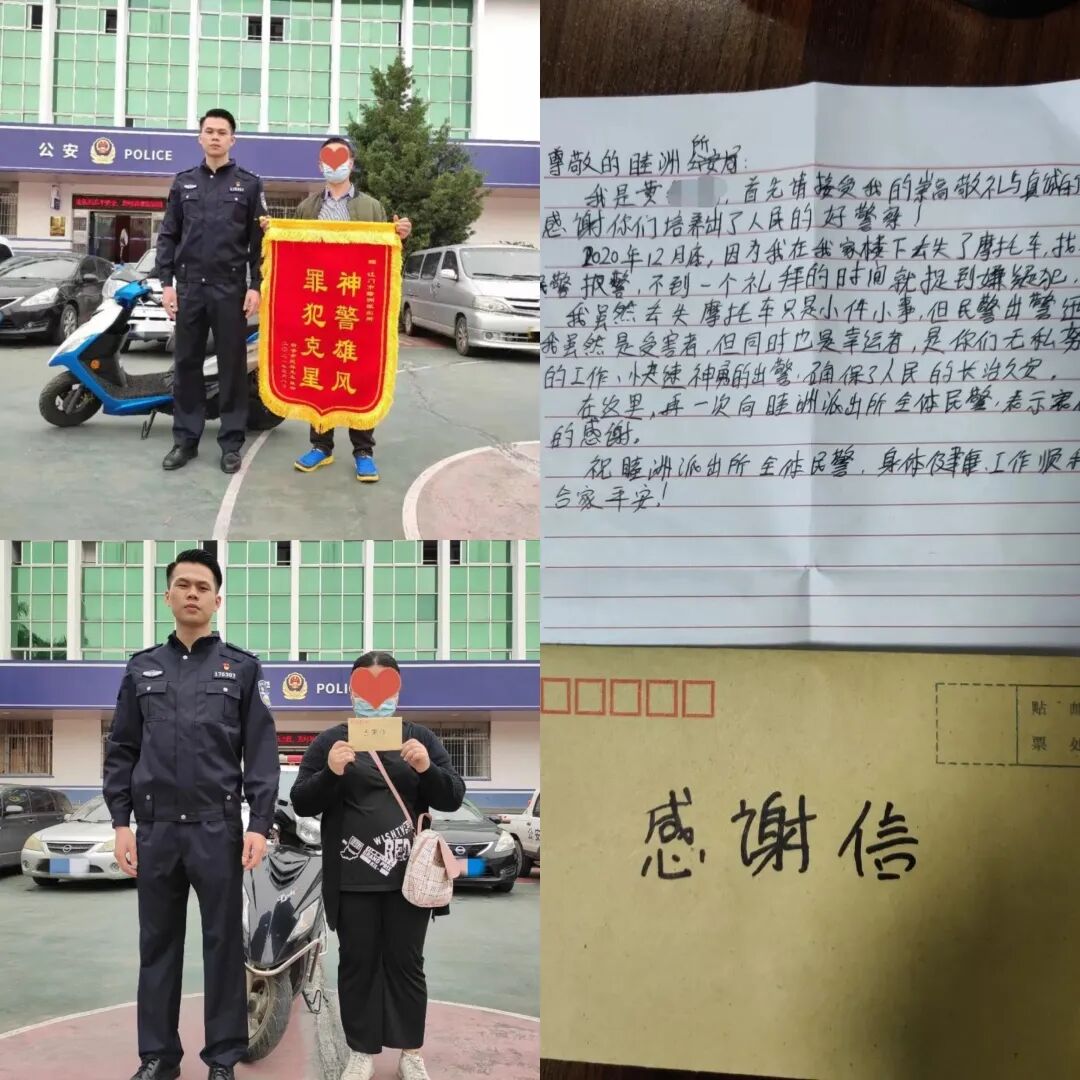 公安 POLICE
神警雄风
罪犯克星
尊敬的睦洲所公安局:
我是黄 ,首先请接受我的崇高敬礼与真诚的
感谢你们培养出了人民的好警察!
2020年12月底,因为我在我家楼下丢失了摩托车,
民警报警,不到一个礼拜的时间就捉到嫌疑犯,
我虽然丢失摩托车只是小件小事,但民警出警还
我虽然是受害者,但同时也是幸运者,是你们无私
的工作、快速神勇的出警,确保了人民的长治久安。
在这里,再一次向睦洲派出所全体民警,表示衷心
的感谢。
祝睦洲派出所全体民警,身体健康、工作顺利
合家平安!
POL
176303
公安
贴邮
票处
感谢信